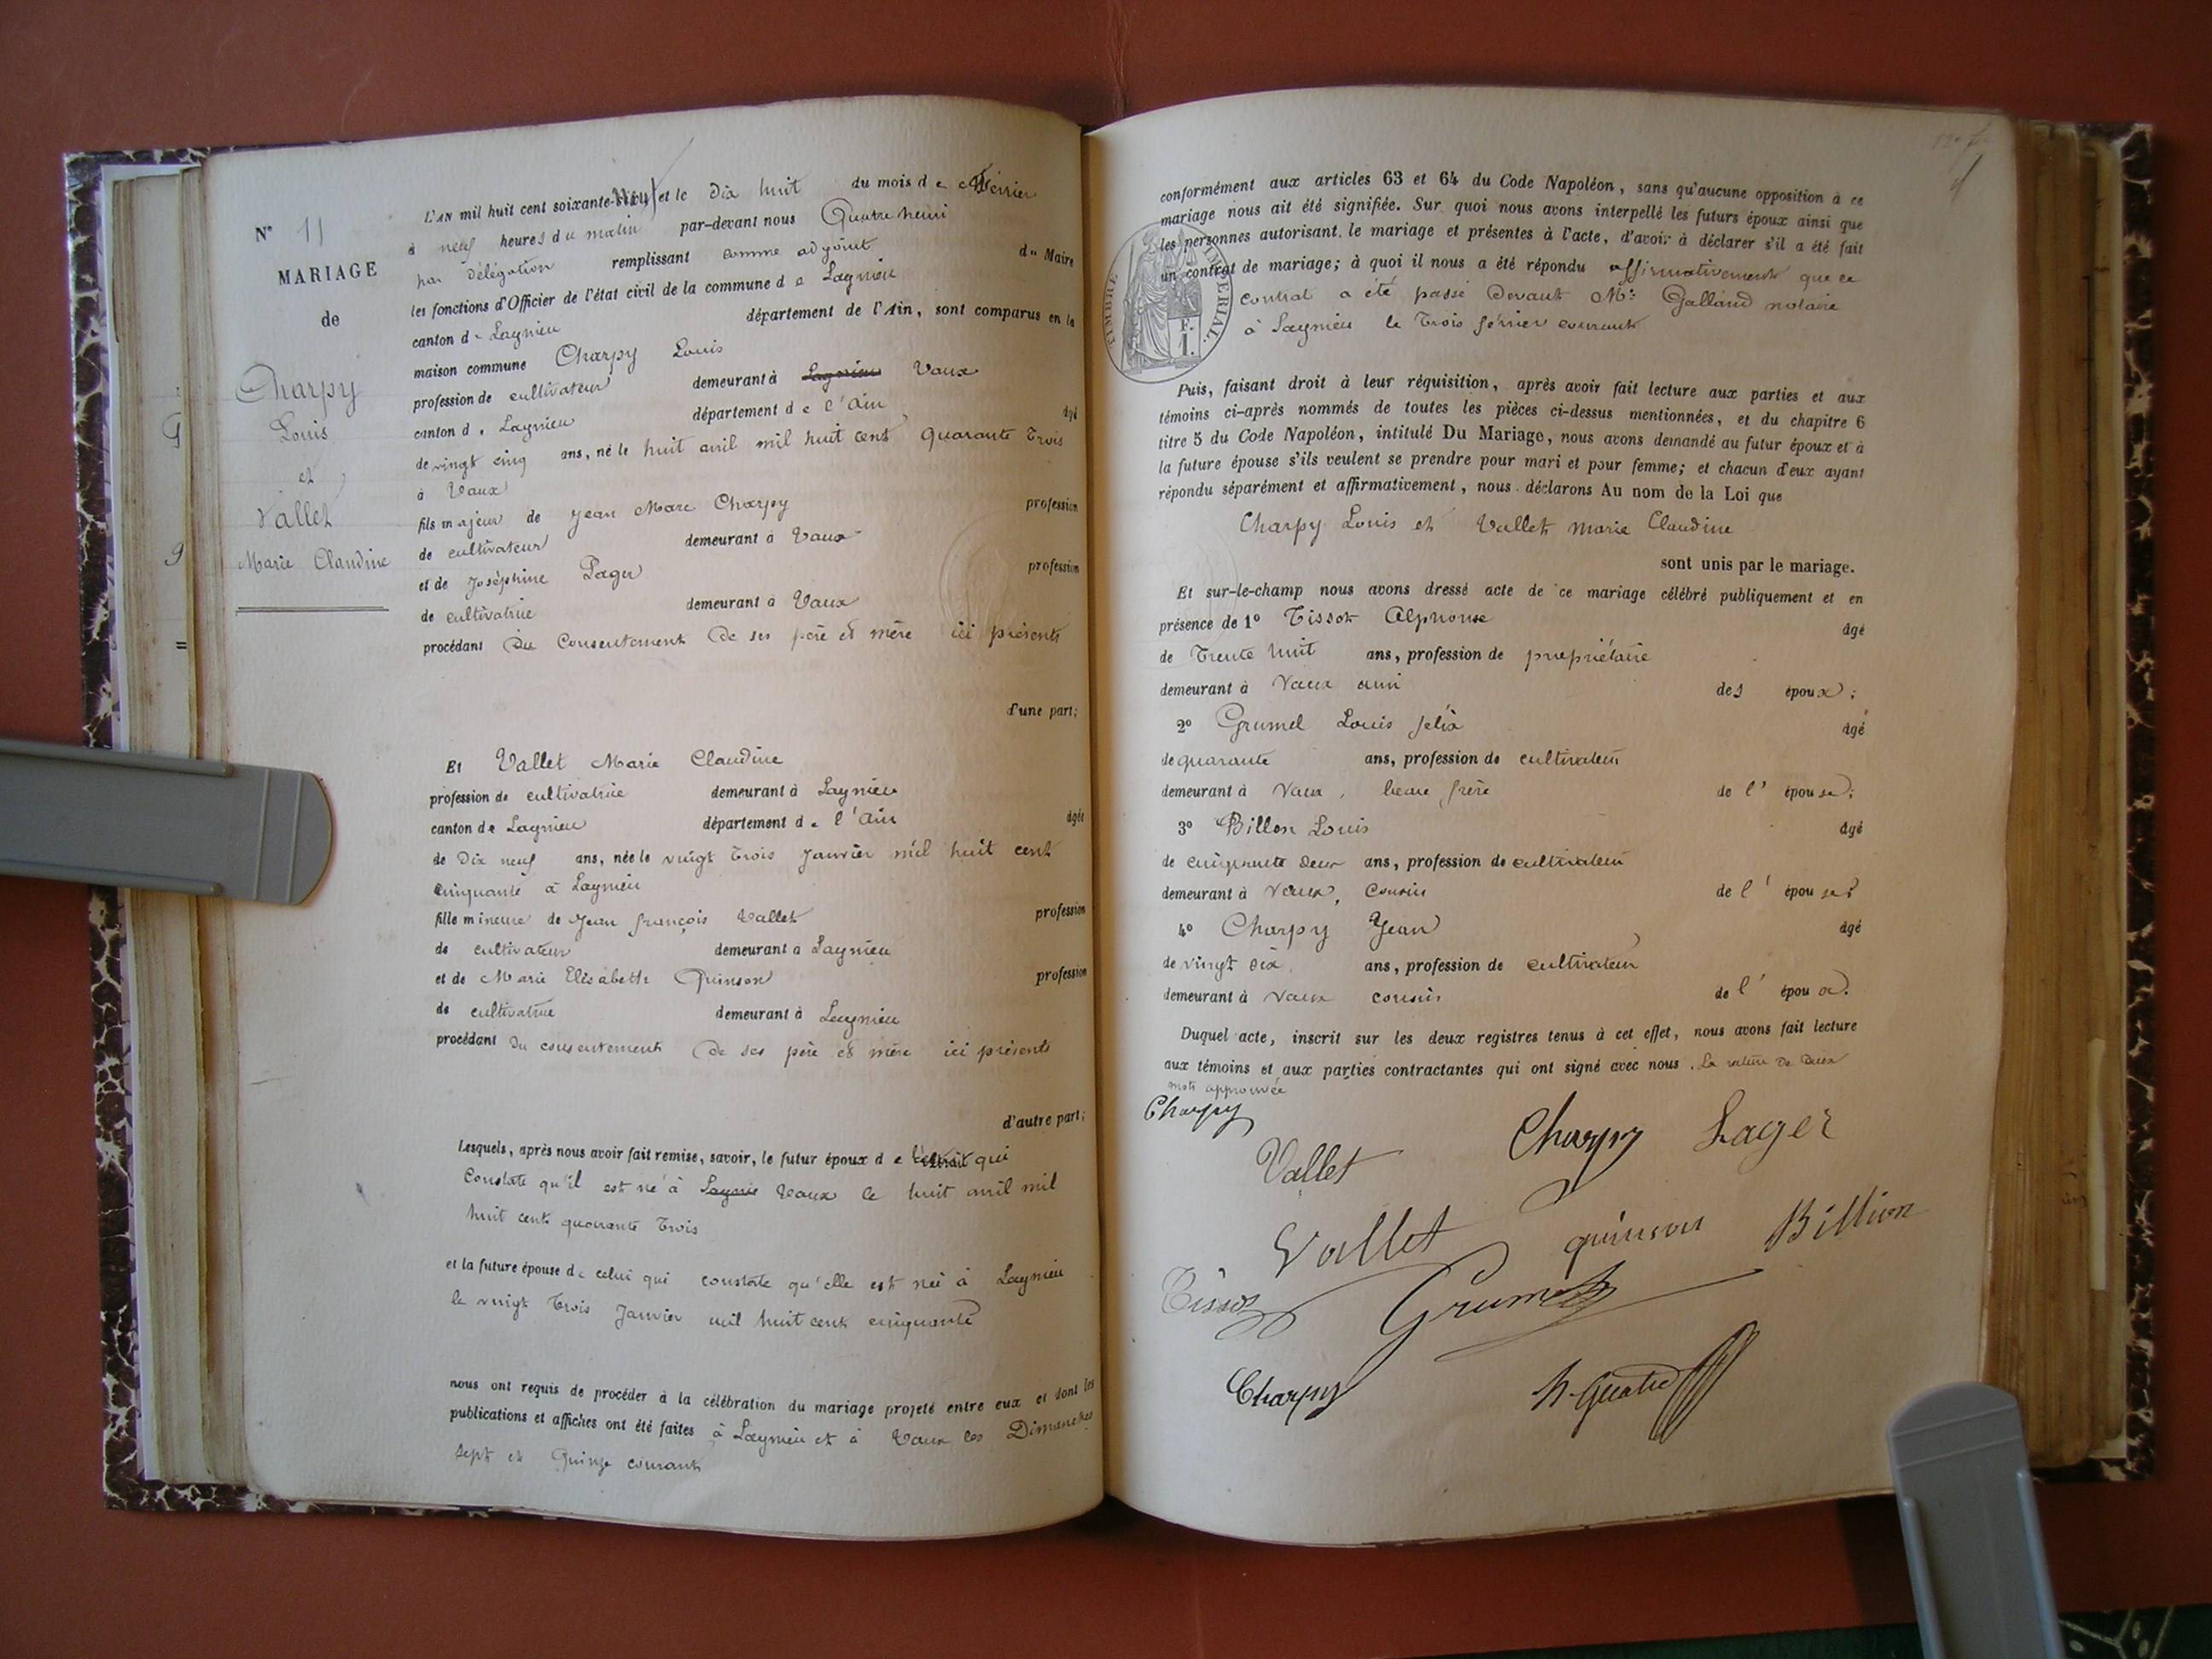 N° 11
MARIAGE
de
Charpy
Louis
et
Vallet
Marie Claudine
L'AN mil huit cent soixante-neuf et le Dix huit du mois de février
à neuf heures du matin par-devant nous Quatre henri
par délégation remplissant comme adjoint du Maire
les fonctions d'Officier de l'état civil de la commune de Lagnieu
canton de Lagnieu département de l'Ain, sont comparus en la
maison commune Charpy Louis
profession de cultivateur demeurant à Lagnieu Vaux
canton de Lagnieu département de l'ain âgé
de vingt cinq ans, né le huit avril mil huit cent quarante Trois
à Vaux
fils majeur de jean Marc Charpy profession
de cultivateur demeurant à Vaux
et de Joséphine Lager profession
de cultivatrice demeurant à Vaux
procédant Du Consentement De ses père et mère ici présents
d'une part;
Et Vallet Marie Claudine
profession de cultivatrice demeurant à Lagnieu
canton de Lagnieu département de l'ain âgée
de Dix neuf ans, née le vingt Trois Janvier mil huit cent
cinquante à Lagnieu
fille mineure de Jean françois Vallet profession
de cultivateur demeurant à Lagnieu
et de Marie Elisabeth Quinson profession
de cultivatrice demeurant à Lagnieu
procédant Du consentement De ses père et mère ici présents
d'autre part;
Lesquels, après nous avoir fait remise, savoir, le futur époux de l'extrait qui
Constate qu'il est né à Lagnie Vaux le huit avril mil
huit cent quarante Trois
et la future épouse de celui qui constate qu'elle est née à Lagnieu
le vingt Trois Janvier mil huit cent cinquante
nous ont requis de procéder à la célébration du mariage projeté entre eux et dont les
publications et affiches ont été faites à Lagnieu et à Vaux les Dimanches
sept et Quinze courant
conformément aux articles 63 et 64 du Code Napoléon, sans qu'aucune opposition à ce
mariage nous ait été signifiée. Sur quoi nous avons interpellé les futurs époux ainsi que
les personnes autorisant le mariage et présentes à l'acte, d'avoir à déclarer s'il a été fait
un contrat de mariage; à quoi il nous a été répondu affirmativement que ce
contrat a été passé Devant Me Galland notaire
à Lagnieu le Trois février courant
TIMBRE IMPERIAL.
1 F.
Puis, faisant droit à leur réquisition, après avoir fait lecture aux parties et aux
témoins ci-après nommés de toutes les pièces ci-dessus mentionnées, et du chapitre 6
titre 5 du Code Napoléon, intitulé Du Mariage, nous avons demandé au futur époux et à
la future épouse s'ils veulent se prendre pour mari et pour femme; et chacun d'eux ayant
répondu séparément et affirmativement, nous déclarons Au nom de la Loi que
Charpy Louis et Vallet Marie Claudine
sont unis par le mariage.
Et sur-le-champ nous avons dressé acte de ce mariage célébré publiquement et en
présence de 1° Tissot Alphonse âgé
de Trente huit ans, profession de propriétaire
demeurant à Vaux ami des époux;
2° Grumel Louis félix âgé
de quarante ans, profession de cultivateur
demeurant à Vaux, beau frère de l'épouse;
3° Billon Louis âgé
de cinquante deux ans, profession de cultivateur
demeurant à Vaux, cousin de l'épouse;
4° Charpy Jean âgé
de vingt six ans, profession de cultivateur
demeurant à Vaux cousin de l'époux.
Duquel acte, inscrit sur les deux registres tenus à cet effet, nous avons fait lecture
aux témoins et aux parties contractantes qui ont signé avec nous. La rature de deux
mots approuvée
Charpy
Vallet Charpy Lager
Vallet quinson Billion
Tissot Grumel
Charpy h. Quatre